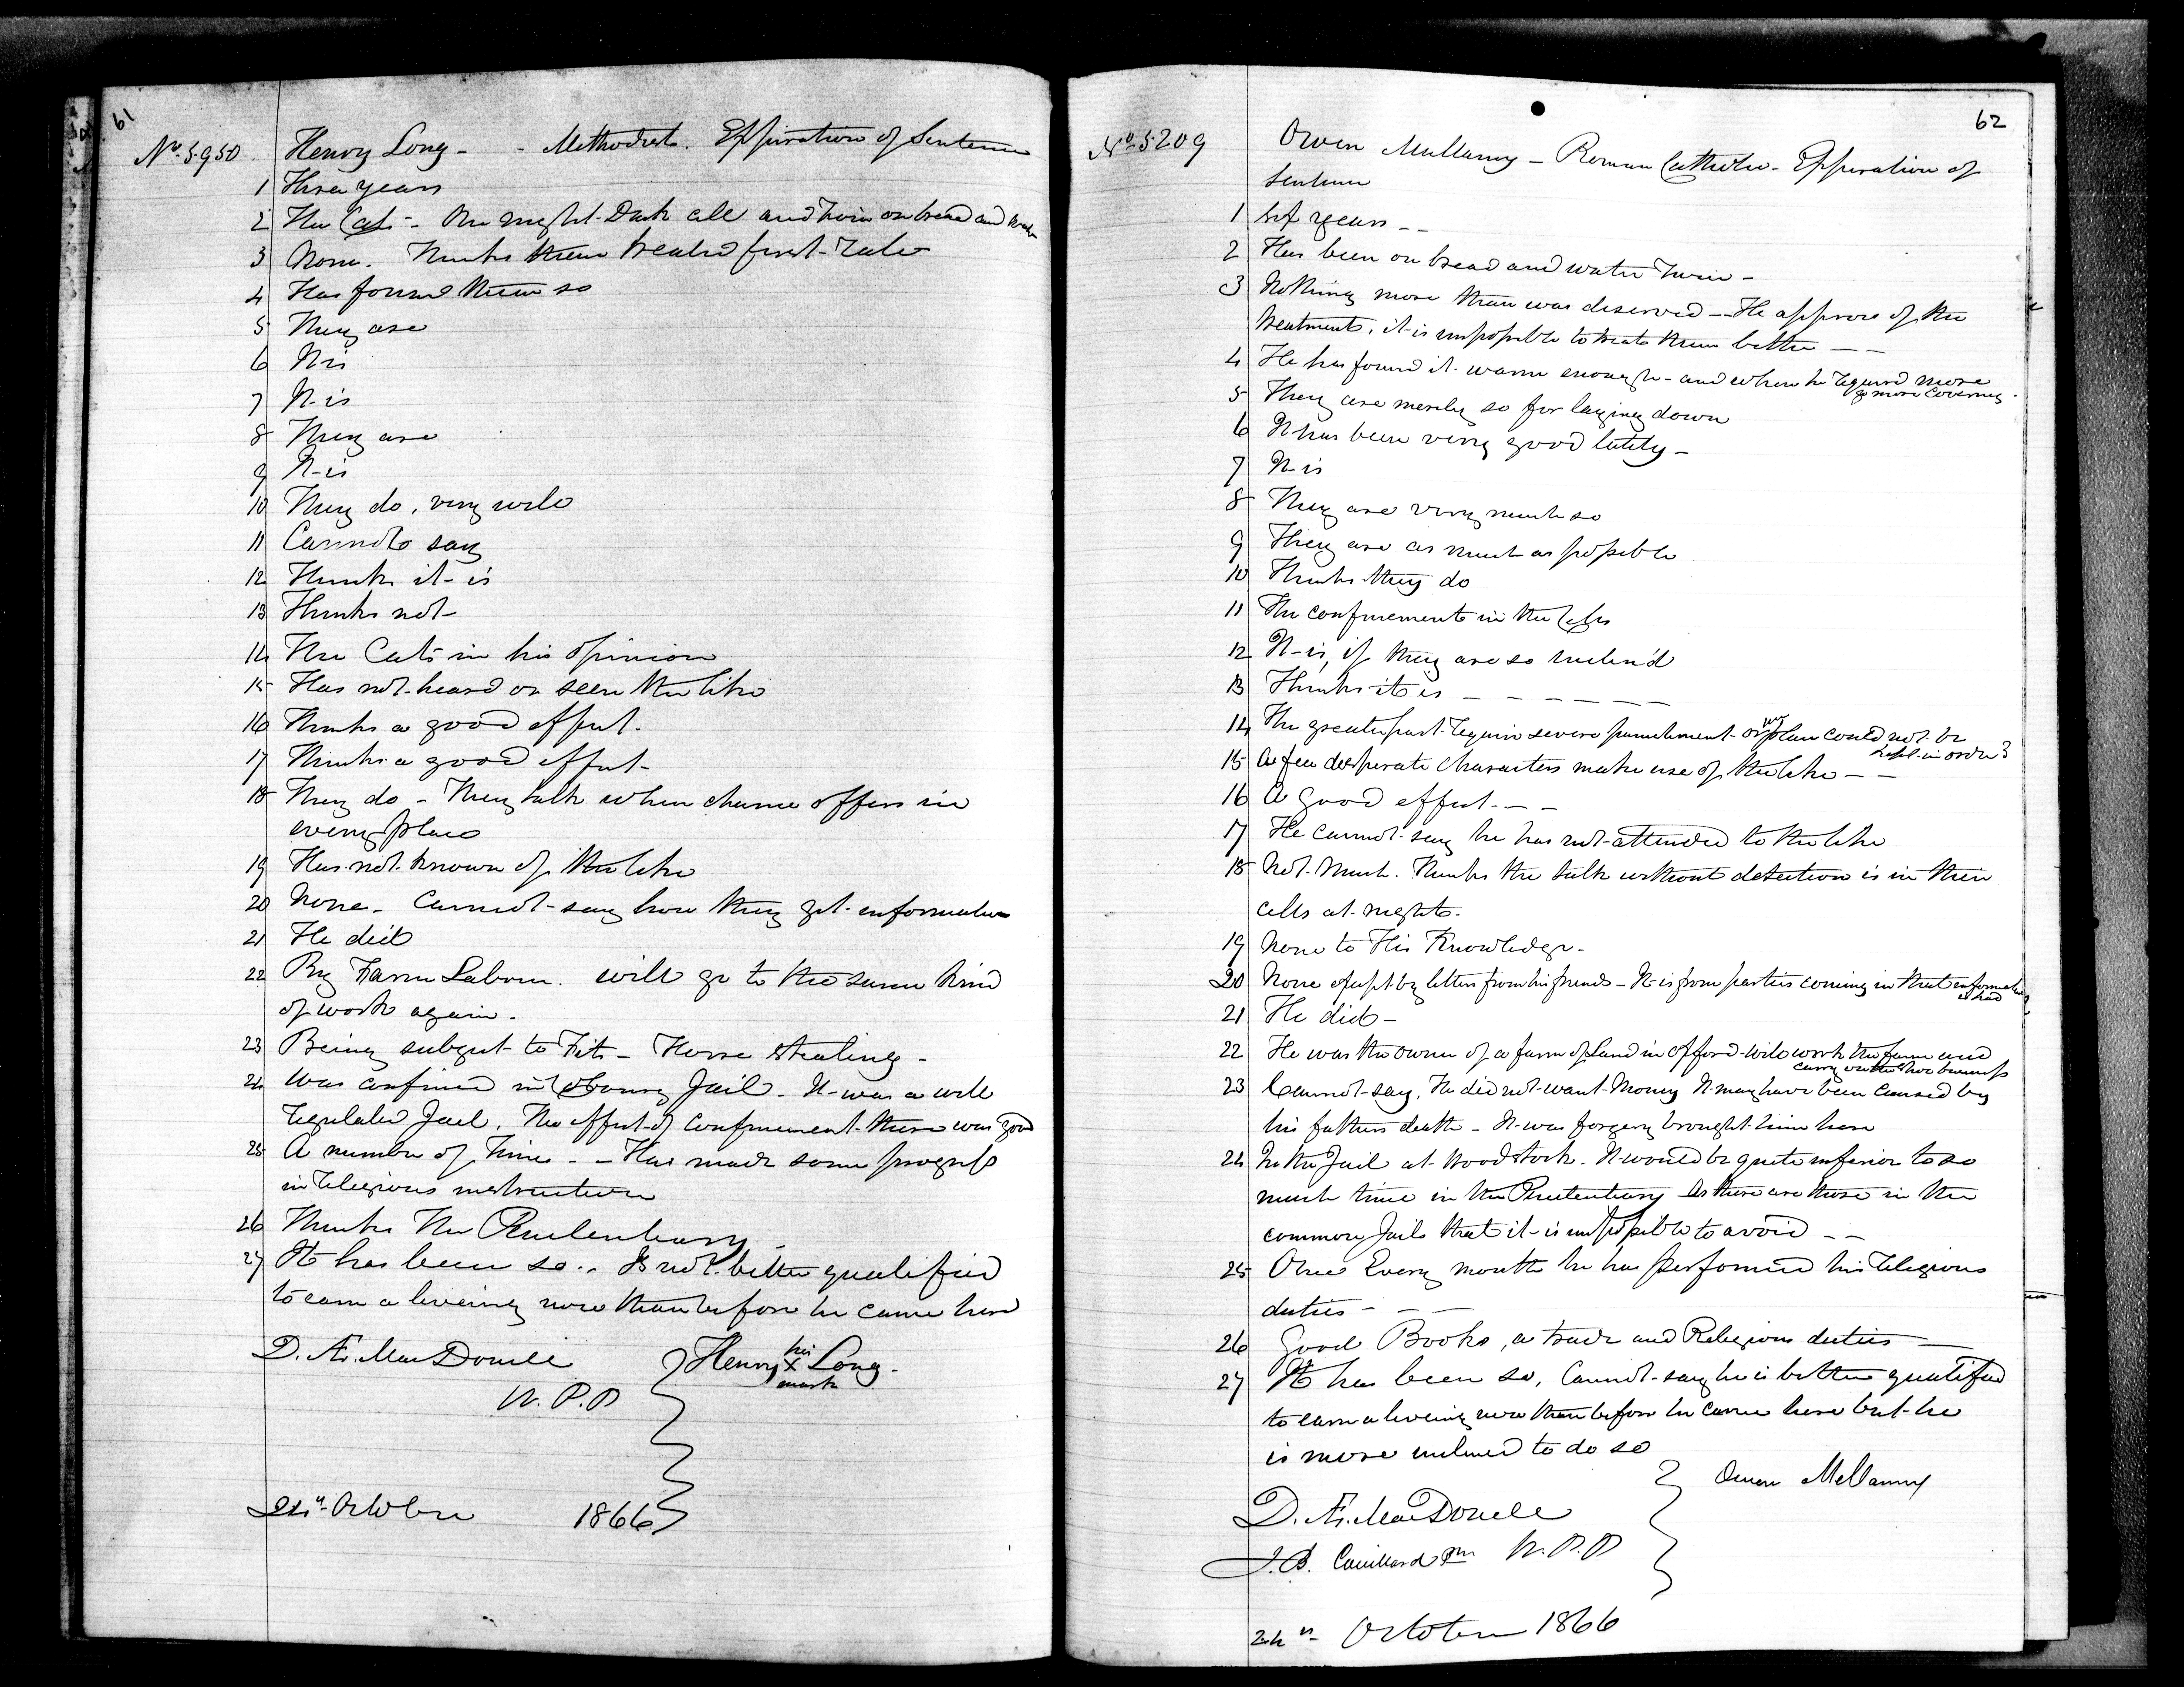 61
No. 5.950 Henry Long - - Methodist. Expiration of Sentence
1 Three years
2 The Cats - One night Dark cell and twice on bread and water
3 None. Thinks them treated first-rate
4 Has found them so
5 They are
6 It is
7 It is
8 They are
9 It is
10 They do, very well
11 Cannot say
12 Thinks it is
13 Thinks not
14 The Cats in his opinion
15 Has not heard or seen the like
16 Thinks a good effect.
17 Thinks a good effect
18 They do - They talk when chance offers in
every place
19 Has not known of the like
20 None. Cannot say how they get information
21 He did
22 By Farm Labour. will go to the same kind
of work again.
23 Being subject to Fits - Horse stealing -
24 Was confined in Jail. It was a well
regulated Jail. The effect of confinement there was good
25 A number of times - - Has made some progress
in religious instruction
26 Thinks The Penitentiary
27 It has been so.. Is not better qualified
to earn a liveing now than before he came here
D. Æ. MacDonell
W. P. P
Henry his X mark Long.
24th October 1866
62
No. 5.209 Owen Mullarny - Roman Catholic - Expiration of
Sentence
1 Six years - -
2 Has been on bread and water twice -
3 Nothing more than was deserved - He approves of the
treatment, it is impossible to treat them better - -
4 He has found it warm enough - and when he required more
got more covering.
5 They are merely so for laying down
6 It has been very good lately -
7 It is
8 They are very much so
9 They are as much as possible
10 Thinks they do
11 The confinement in the Cells
12 It is, if they are so inclin'd
13 Thinks it is - - - - - -
14 The greater part require severe punishment or the place could not be
kept in order
15 A few desperate characters make use of the like - -
16 A good effect. - -
17 He cannot say he has not attended to the like
18 Not much. Thinks the talk without detection is in their
cells at night.
19 None to His Knowledge.
20 None except by letters from his friends - It is from parties coming in that information
is had
21 He did -
22 He was the owner of a farm of Land in Oxford will work the farm and
carry on the business
23 Cannot say, He did not want Money It may have been caused by
his fathers death - It was forgery brought him here
24 In the Jail at Woodstock. It would be quite inferior to so
much time in the Penitentiary As there are those in the
common Jails that it is impossible to avoid - -
25 Once Every month he has performed his religious
duties - - -
26 Good Books, a trade and Religious duties -
27 It has been so, Cannot say he is better qualified
to earn a liveing now than before he came here but he
is more inclined to do so
Owen
D. Æ. MacDonell
J. B. W. P. P
24th October 1866